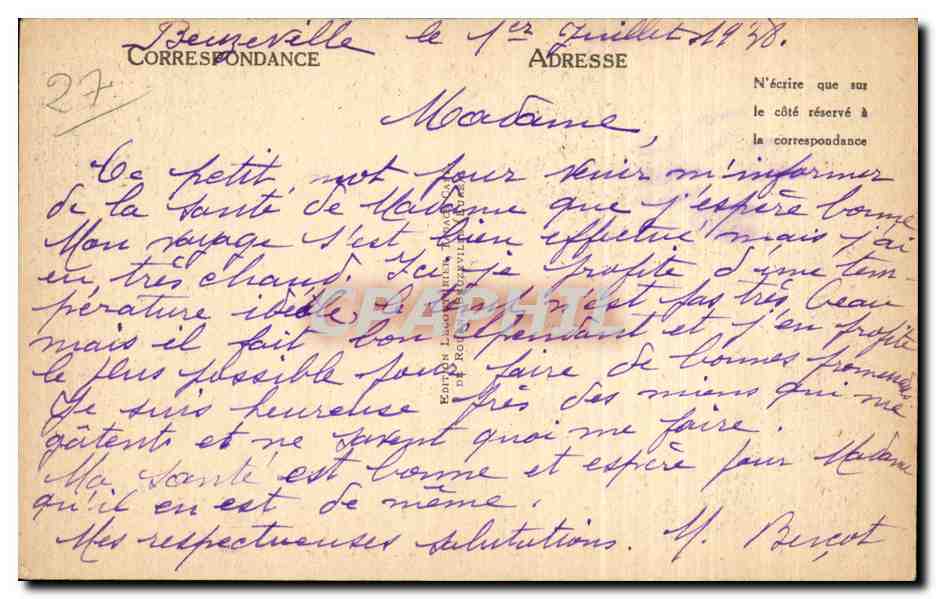 Beuzeville le 1er Juillet 1938.
CORRESPONDANCE ADRESSE
27
N'écrire que sur
le côté réservé à
la correspondance
Madame,
Ce petit mot pour venir m'informer
de la santé de Madame que j'espère bonne
Mon voyage s'est bien effectué mais j'ai
eu très chaud. Ici je profite d'une tem-
pérature idéale, le temps n'est pas très beau
mais il fait bon cependant et j'en profite
le plus possible pour faire de bonnes promenades
Je suis heureuse près des miens qui me
gâtents et ne savent quoi me faire.
Ma santé est bonne et espère pour Madame
qu'il en est de même.
Mes respectueuses salututions. M. Berçot
EDITION
DE ROUEN BEUZEVILLE
CPAPHIL